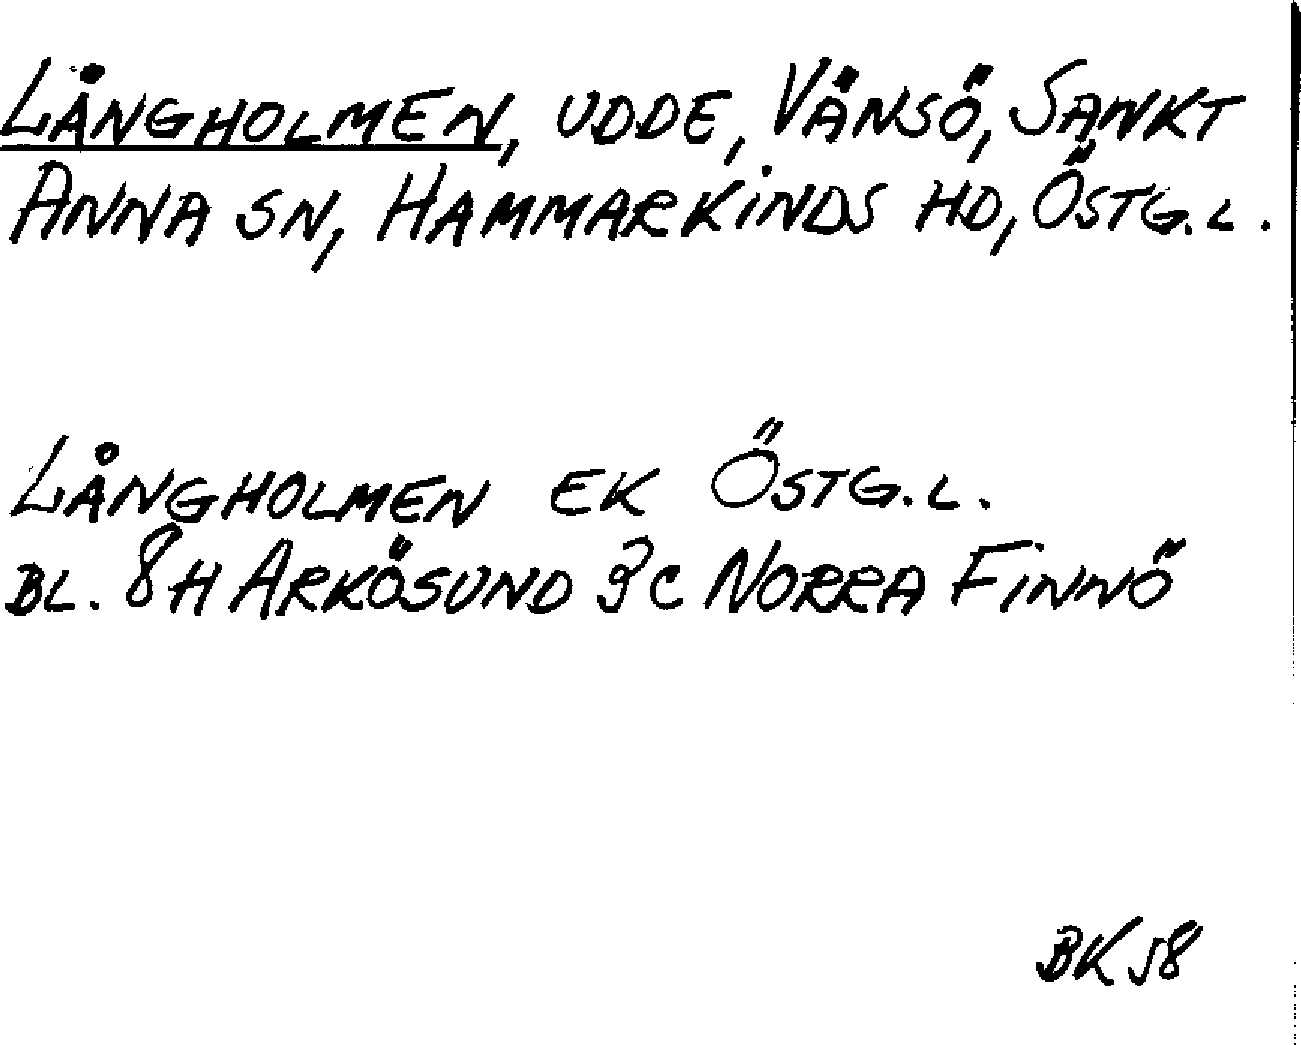 LÅNGHOLMEN, UDDE, VÄNSÖ, SANKT
ANNA SN, HAMMARKINDS HD, ÖSTG.L.
LÅNGHOLMEN EK ÖSTG.L.
BL. 8H ARKÖSUND 9C NORRA FINNÖ
BK 58